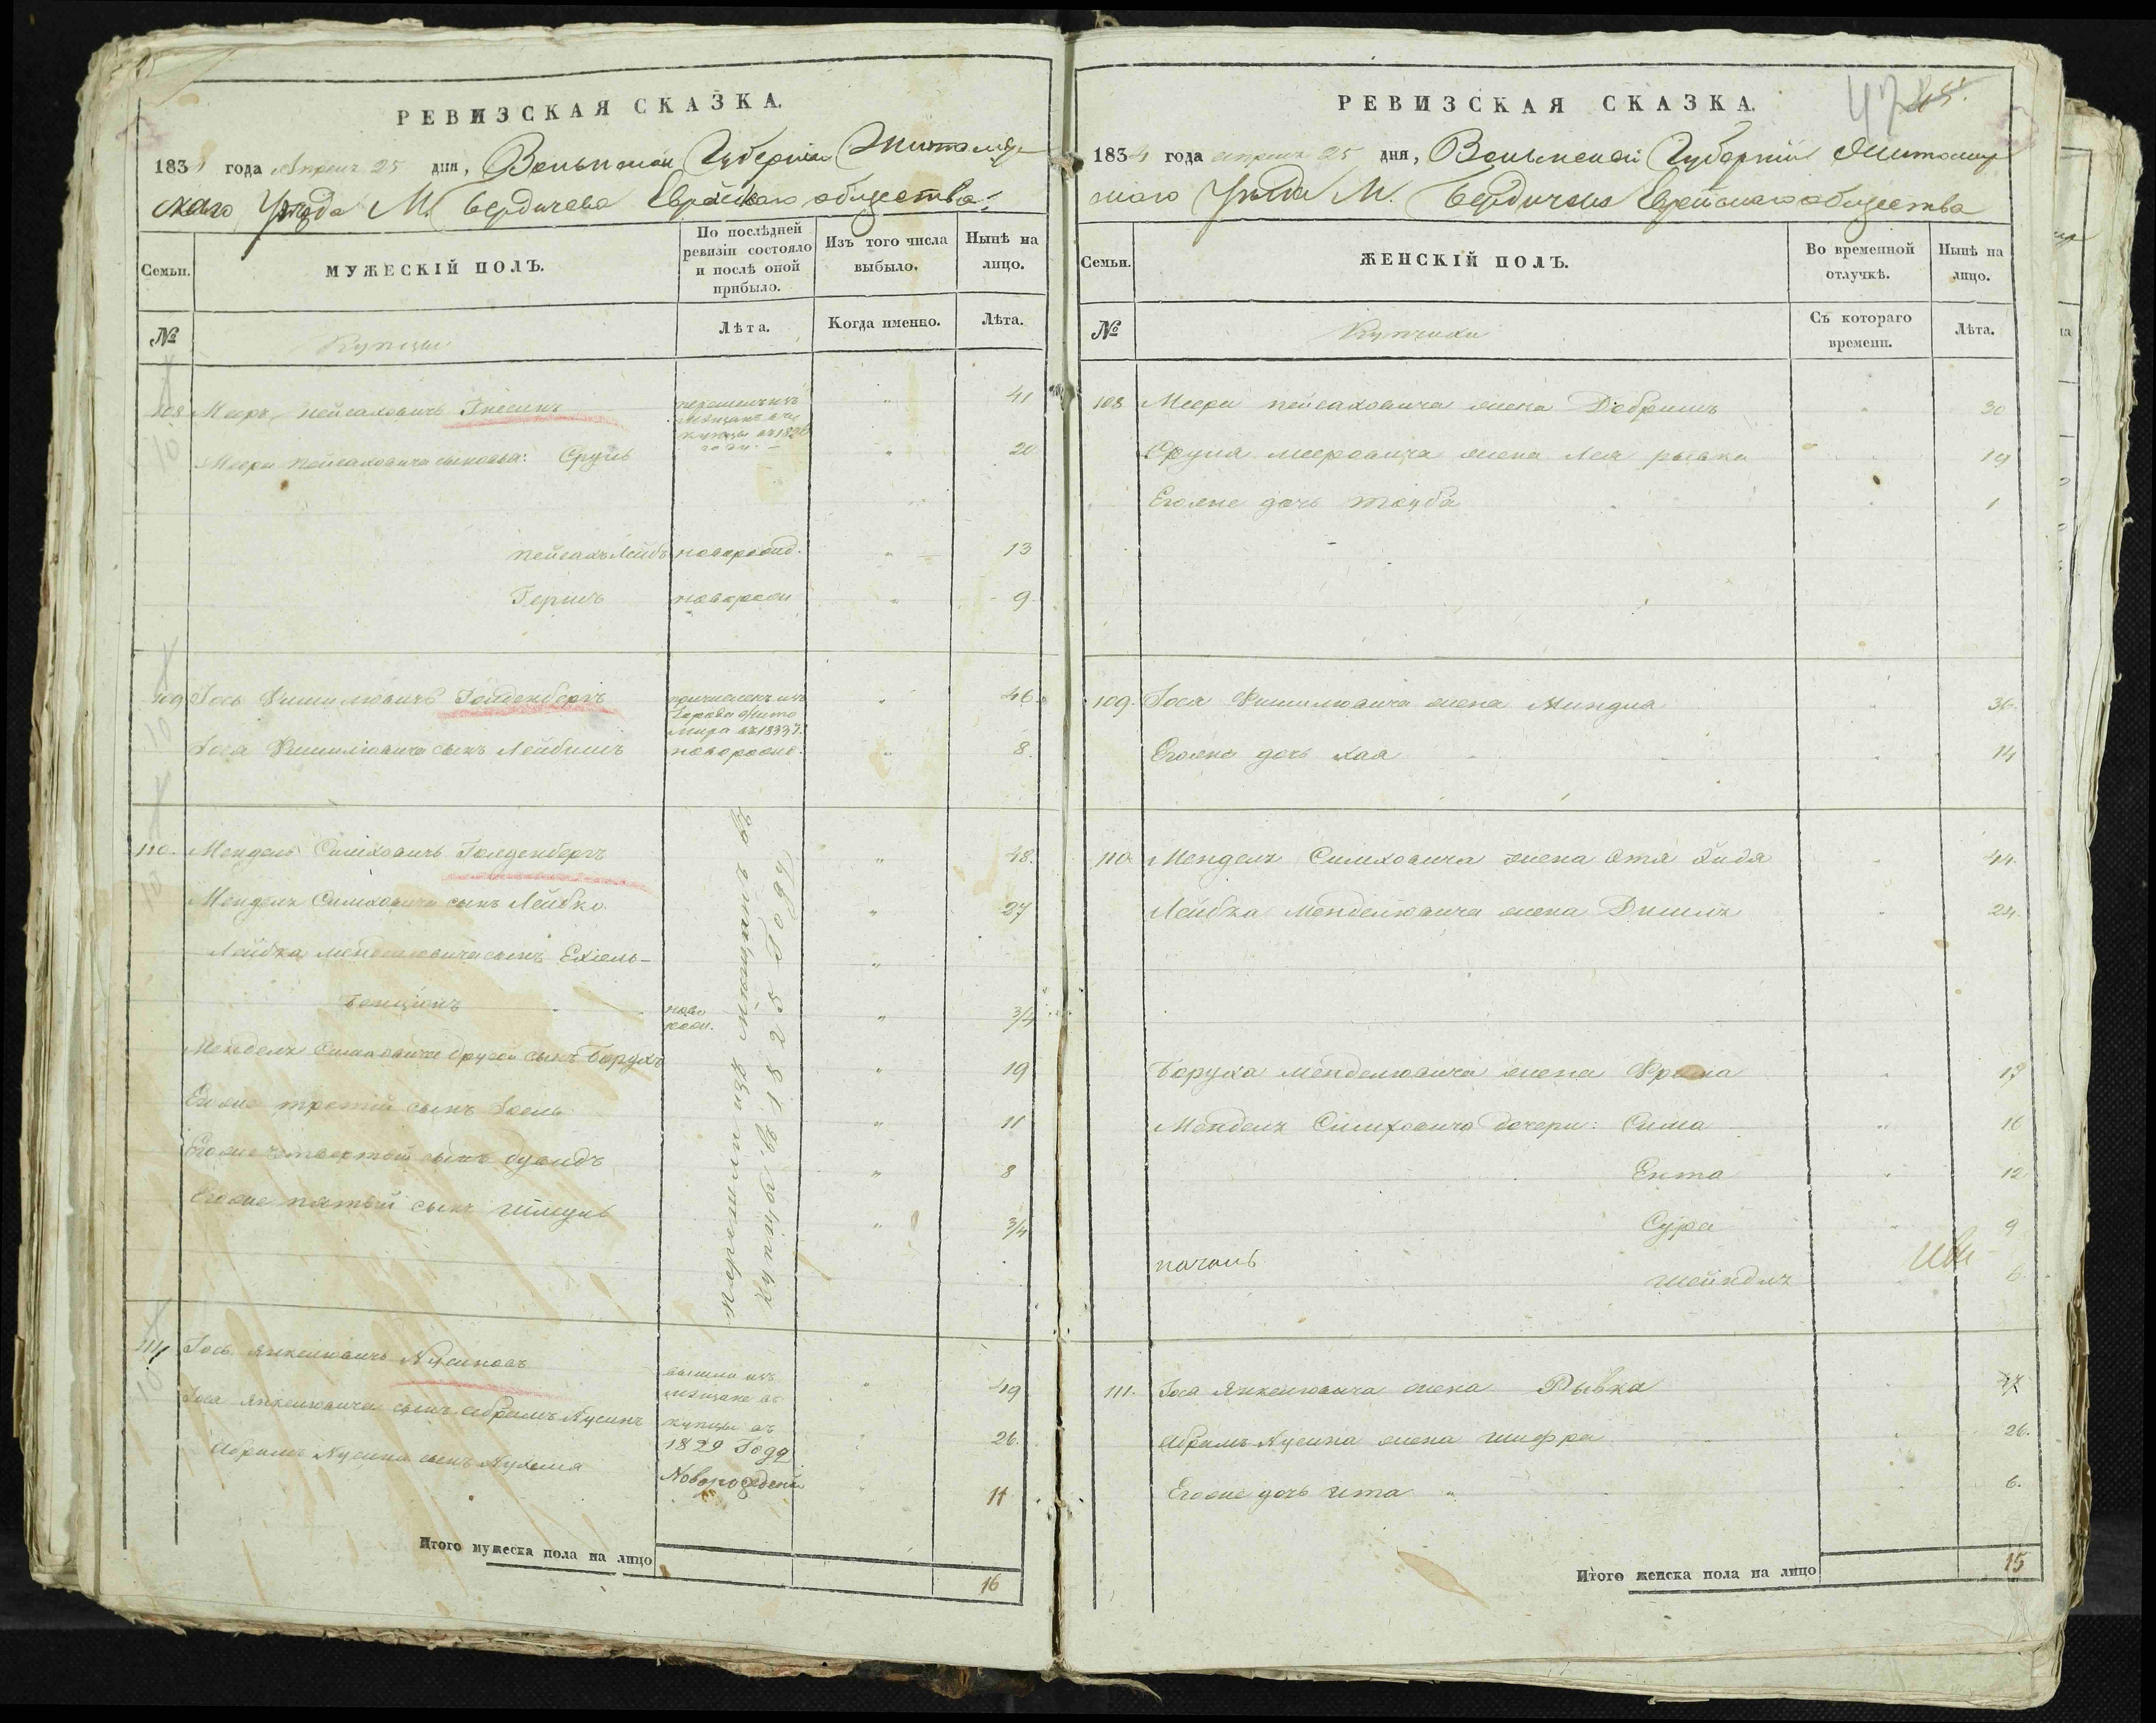 РЕВИЗСКАЯ СКАЗКА.
183 года Апреля 25 дня, Волынской Губернии Житомир-
скаго Уезда М. Бердичева Еврейскаго общества:
Семьи.
МУЖЕСКІЙ ПОЛЪ.
По послѣдней ревизіи состояло и послѣ оной прибыло.
Изъ того числа выбыло.
Нынѣ на лицо.
№
Купцы
Лѣта.
Когда именно.
Лѣта.
108 Мееръ Пейсаховичъ Гнесинъ 41
купцы въ 1826
году
Меера Пейсаховича сыновья: Сруль 20
Пейсахъ Лейбъ новорожд. 13
Гершъ новорож 9
109 Іось Фишилювичъ Голденбергъ причисленъ изъ 46
Города Жито
мира въ 1833 г.
Іося Фишилювича сынъ Лейбишъ новорожд. 8
110. Мендель Симховичъ Голденбергъ " 48.
Менделя Симховича сынъ Лейбко " 27
Лейбка Менделювича сынъ Ехіель- "
Бенціонъ ново рож. " 3/4
Менделя Симховича другой сынъ Борухъ " 19
Егоже третій сынъ Іоель " 11
Егоже четвертый сынъ Дувидъ " 8
Егоже пятый сынъ Шмуль " 3/4
перешли изъ мещанъ въ
купцы въ 1825 Году
111 Іось Янкелювичъ Нусиновъ 49
Іося Янкелювича сынъ Абрамъ Нусинъ купцы въ 26.
1829 Году
Абрамъ Нусина сынъ Нухома Новорожденъ 11
Итого мужеска пола на лицо 16
47 45.
РЕВИЗСКАЯ СКАЗКА.
1834 года апреля 25 дня, Волынской Губерніи Житомир
скаго Уезда М. Бердичева Еврейскаго общества
Семьи.
ЖЕНСКІЙ ПОЛЪ.
Во временной отлучкѣ.
Нынѣ на лицо.
№
Купчихи
Съ котораго времени.
Лѣта.
108 Меера Пейсаховича жена Добришъ " 30
Сруля Мееровича жена Лея Рывка 19
Егоже дочь Тауба " 1
109. Іося Фишилювича жена Миндля " 36.
Егоже дочь Хая " 14
110. Менделя Симховича жена Этя Гидя " 44.
Лейбка Менделювича жена " 24.
Боруха Менделювича жена " 17
Менделя Симховича дочери: Сима " 16
Ента " 12
Сура " 9
Шейндля 6.
111. Іося Янкелювича жена Рывка 47
Абрамъ Нусина жена Шифра 26.
Егоже дочь Ита " 6.
Итого женска пола на лицо 15